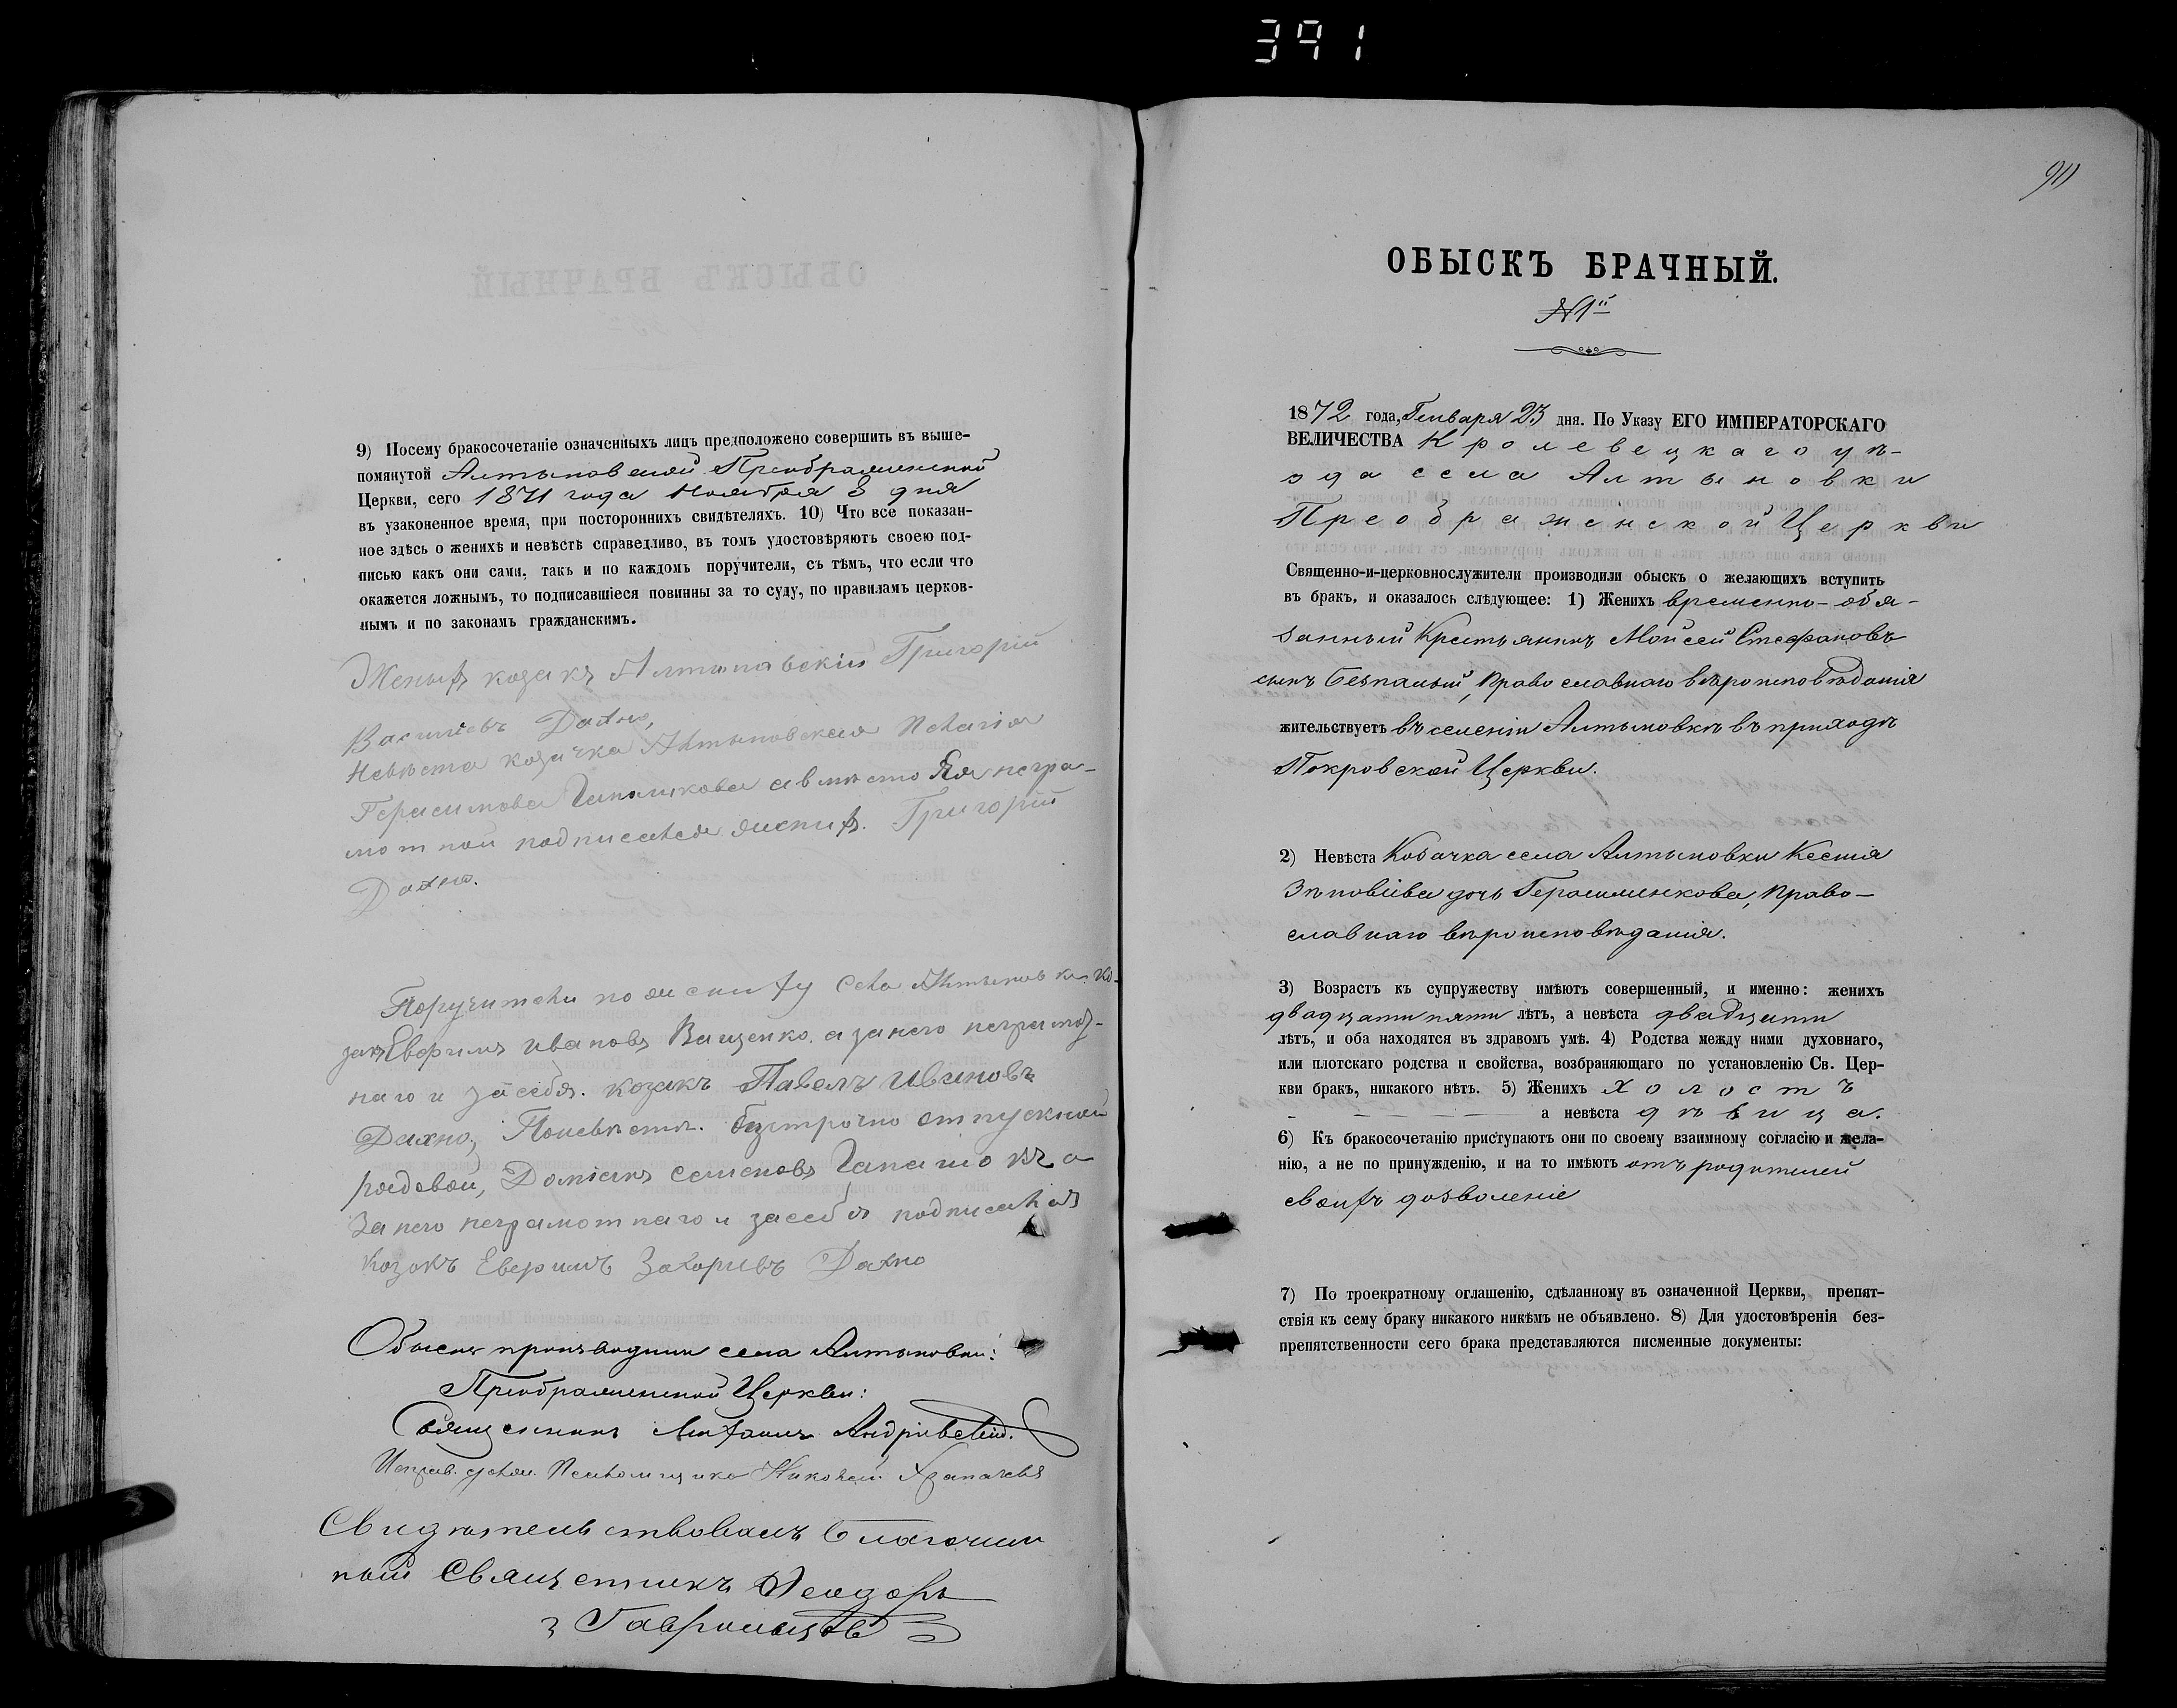 391
9) Посему бракосочетаніе означенныхъ лицъ предположено совершить въ выше-
помянутой Алтыновской Преображенской
Церкви, сего 1871 года Ноября 8 дня
въ узаконенное время, при постороннихъ свидѣтеляхъ. 10) Что все показан-
ное здѣсь о женихѣ и невѣстѣ справедливо, въ томъ удостовѣряютъ своею под-
писью какъ они сами, такъ и по каждомъ поручители, съ тѣмъ, что если что
окажется ложнымъ, то подписавшіеся повинны за то суду, по правиламъ церков-
нымъ и по законамъ гражданскимъ.
Женыхъ козакъ Алтыновскій Григорій
Василіевъ Дахно,
Невѣста козачка Алтыновская
Герасимова а вмѣсто Ея негра-
мотной подписался жених. Григорій
Дахно.
Поручители по жениху села Алтыновки ко-
закъ Евфимъ Ивановъ Ващенко а за него неграмот-
наго и за себя. козакъ Павелъ Ивановъ
Дахно, По невѣсте. безсрочно отпускной
рядовой, Доміанъ Семеновъ а
За него неграмотнаго и за себя подписался
Козакъ Евфимъ Захоріевъ Дахно
Обыскъ производили села Алтыновки:
Преображенской Церкви:
Священникъ Андріевскій.
Николай
Свидѣтельствовалъ Благочин
ный Священникъ Феодоръ
90
ОБЫСКЪ БРАЧНЫЙ.
№ 1й
1872 года, Генваря 23 дня. По Указу ЕГО ИМПЕРАТОРСКАГО
ВЕЛИЧЕСТВА Кролевецкаго уѣ-
зда села Алтыновки
Преображенской Церкви
Священно-и-церковнослужители производили обыскъ о желающихъ вступить
въ бракъ, и оказалось слѣдующее: 1) Женихъ временно-обя-
занный Крестьянинъ Мойсей Стефановъ
сынъ Безпалый, Православнаго вѣроисповѣданія
жительствуетъ въ селеніи Алтыновкѣ въ приходѣ
Покровской Церкви.
2) Невѣста Козачка села Алтыновки Ксенія
Зѣновіева дочь Герасименкова, Право-
славнаго вѣроисповѣданія.
3) Возрастъ къ супружеству имѣютъ совершенный, и именно: женихъ
двадцати пяти лѣтъ, а невѣста двадцати
лѣтъ, и оба находятся въ здравомъ умѣ. 4) Родства между ними духовнаго,
или плотскаго родства и свойства, возбраняющаго по установленію Св. Цер-
кви бракъ, никакого нѣтъ. 5) Женихъ холостъ
а невѣста дѣвица.
6) Къ бракосочетанію приступаютъ они по своему взаимному согласію и жела-
нію, а не по принужденію, и на то имѣютъ отъ родителей
своихъ дозволеніе
7) По троекратному оглашенію, сдѣланному въ означенной Церкви, препят-
ствія къ сему браку никакого никѣмъ не объявлено. 8) Для удостовѣренія без-
препятственности сего брака представляются писменные документы: